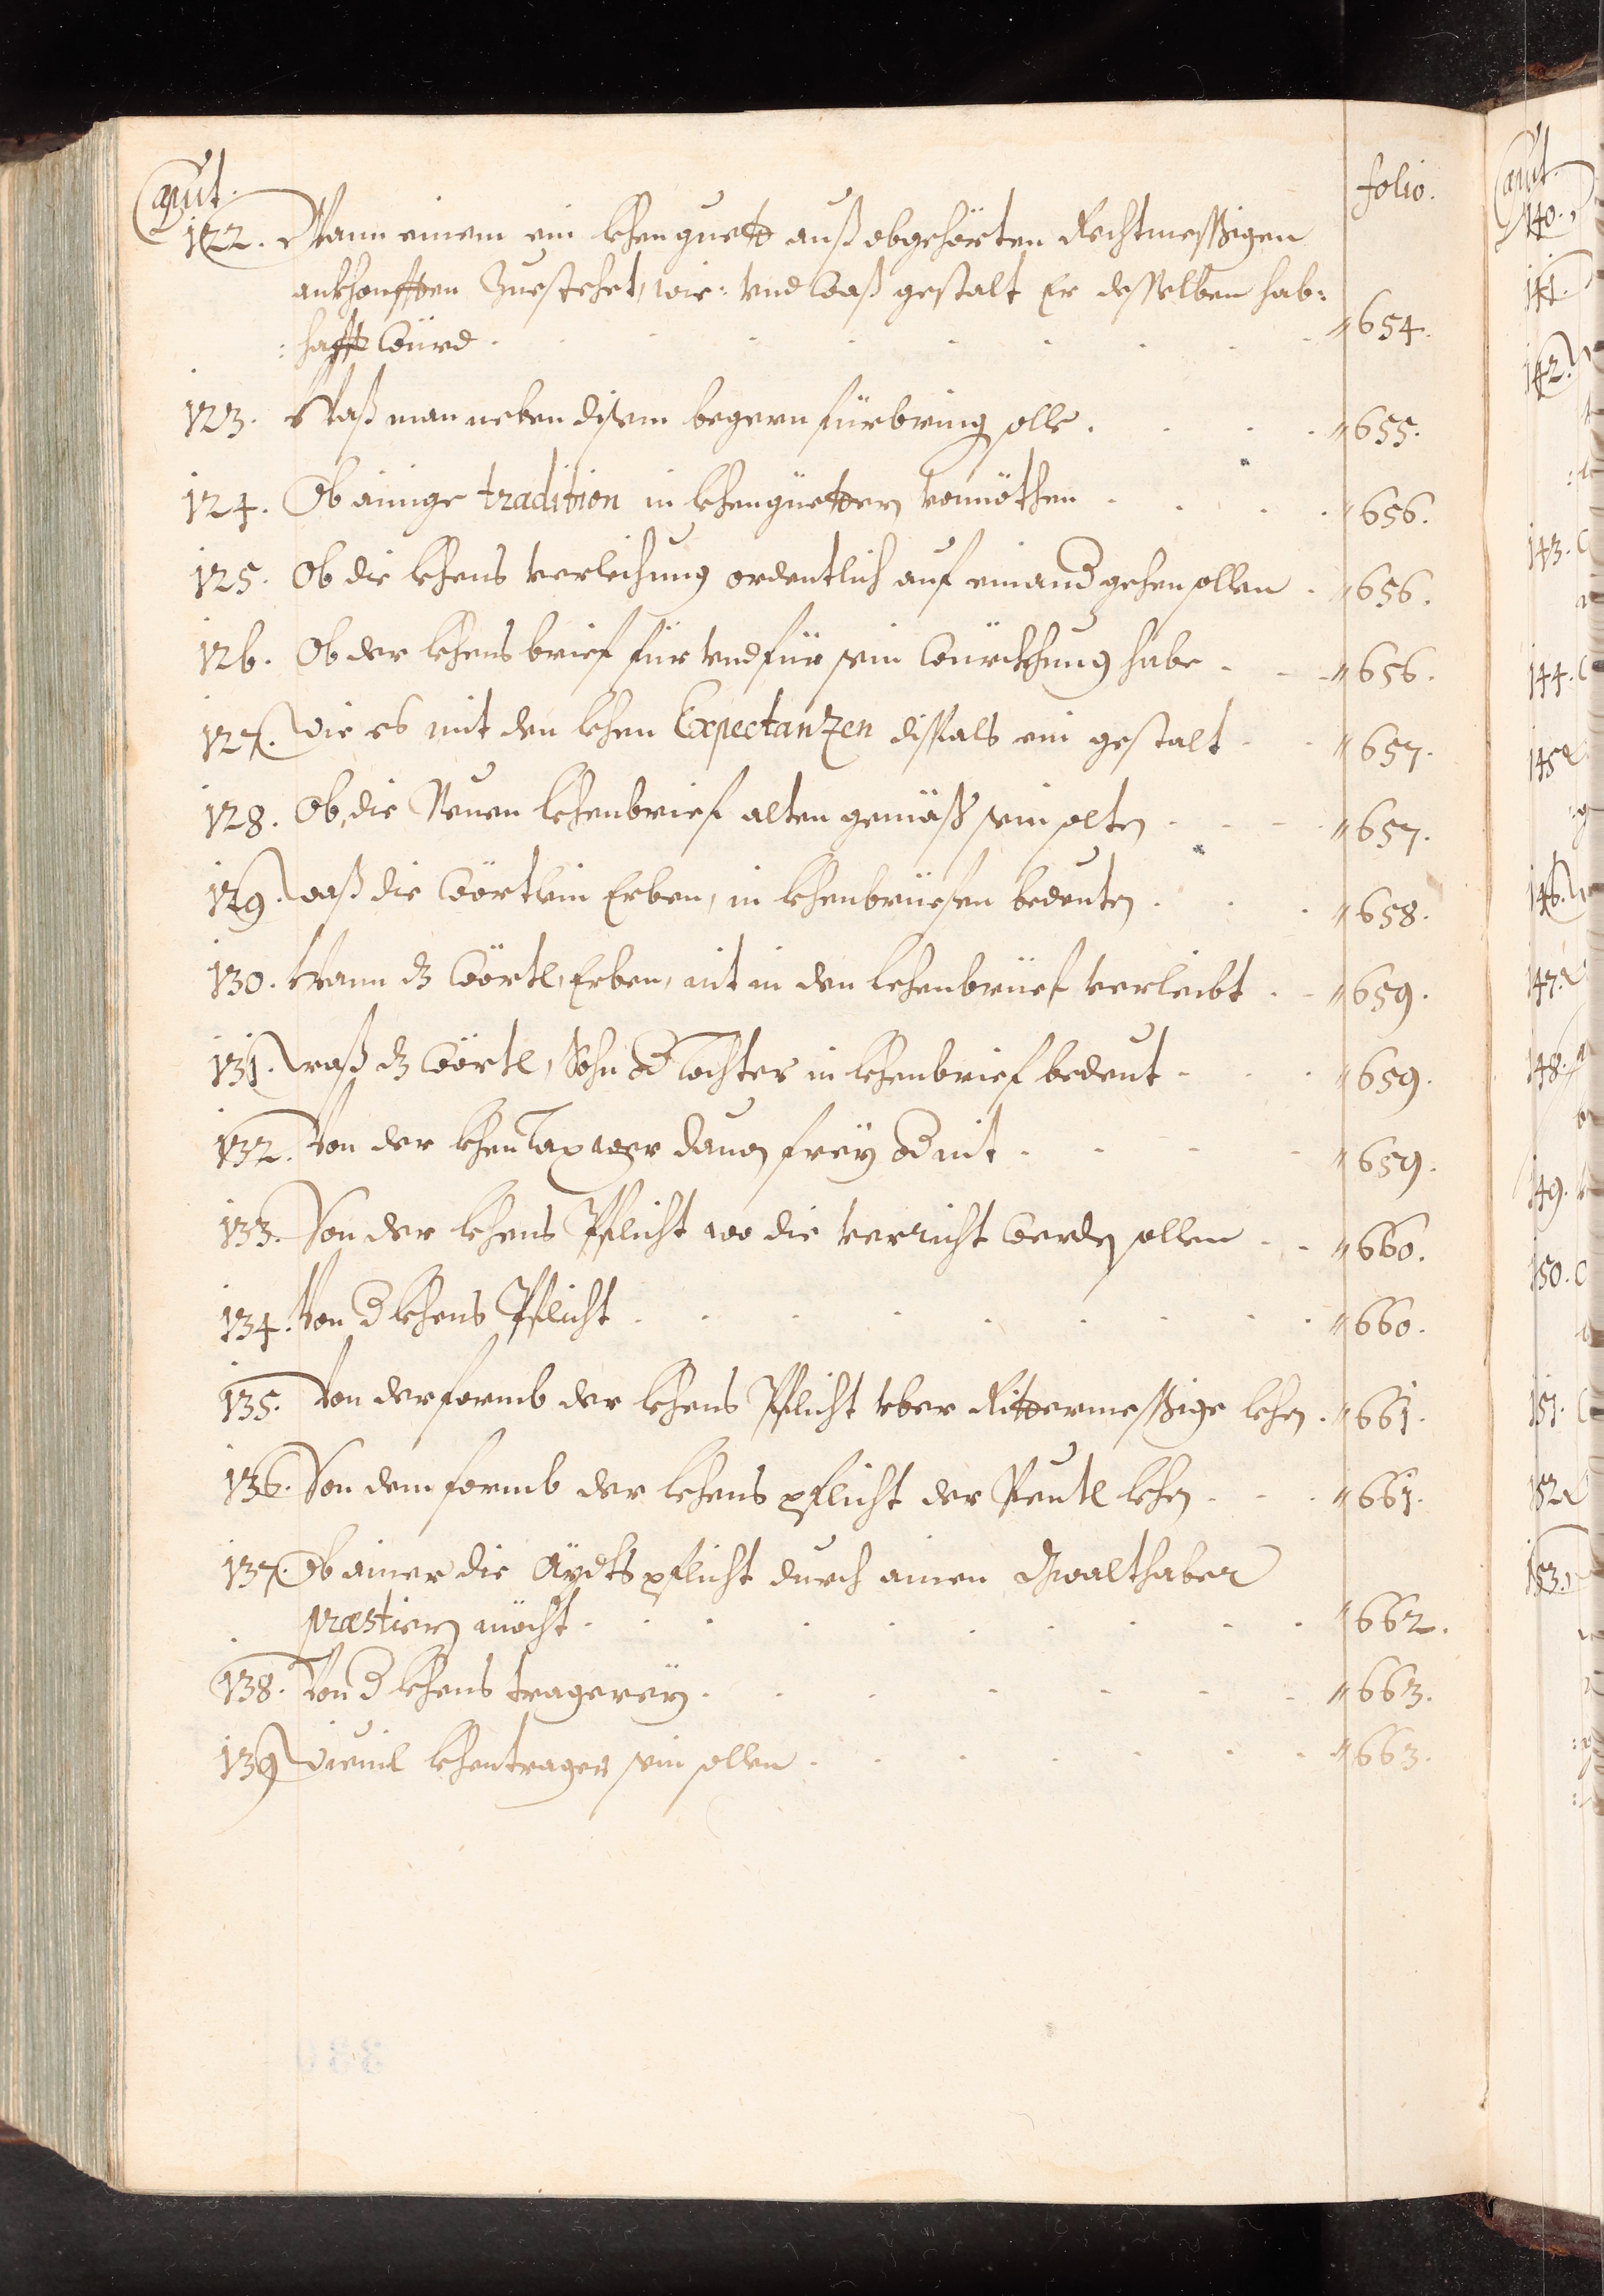 Caput. folio.
122. Wann einem ein lehenguett auß obgehörten Rechtmessigen
ankhonfften Zuestehet, wie: vnd waß gestalt Er desselben hab:
: hafft würd. 654.
123. Waß man neben disem begern fürbring solle. 655.
124. Ob ainige tradition in lehengüettern vonnöthen. 656.
125. Ob die lehens verleihung ordentlich auf einand gehen sollen. 656.
126. Ob der lehens brief für vnd für sein würckhung habe. 656.
127. Wie es mit den lehen Expectanzen dißfals ein gestalt. 657.
128. Ob die Neuen lehenbrief alten gemäß sein solten. 657.
129. Waß die wörtlein Erben, in lehenbrüefen bedeuten. 658.
130. Wann dz wörtl, Erben, nit in den lehenbrüef verleibt. 659.
131. Waß dz wörtl, Sohn od Tochter in lehenbrief bedeut. 659.
132. Von der lehen Tax wer dauon freÿ od nit. 659.
133. Von der lehens Pflicht wo die verricht werden sollen. 660.
134. Von d lehens Pflicht. 660.
135. Von der formb der lehens Pflicht vber Rittermessige lehen. 661.
136. Von dem formb der lehens pflicht der Peutl lehen. 661.
137. Ob ainer die Aÿdtspflicht durch ainen Gwalthaber
præstiern möcht. 662.
138. Von d lehens tragereÿ. 663.
139. Wieuil lehentrager sein sollen. 663.
Caput.
140.
141.
142.
143.
144.
145.
146.
147.
148.
149.
150.
151.
152.
153.